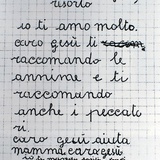 risorto
io ti amo molto.
caro gesù ti
raccomando le
annime e ti
raccomando
anche i peccati
ri.
caro gesù aiuta
mamma. caro gesù